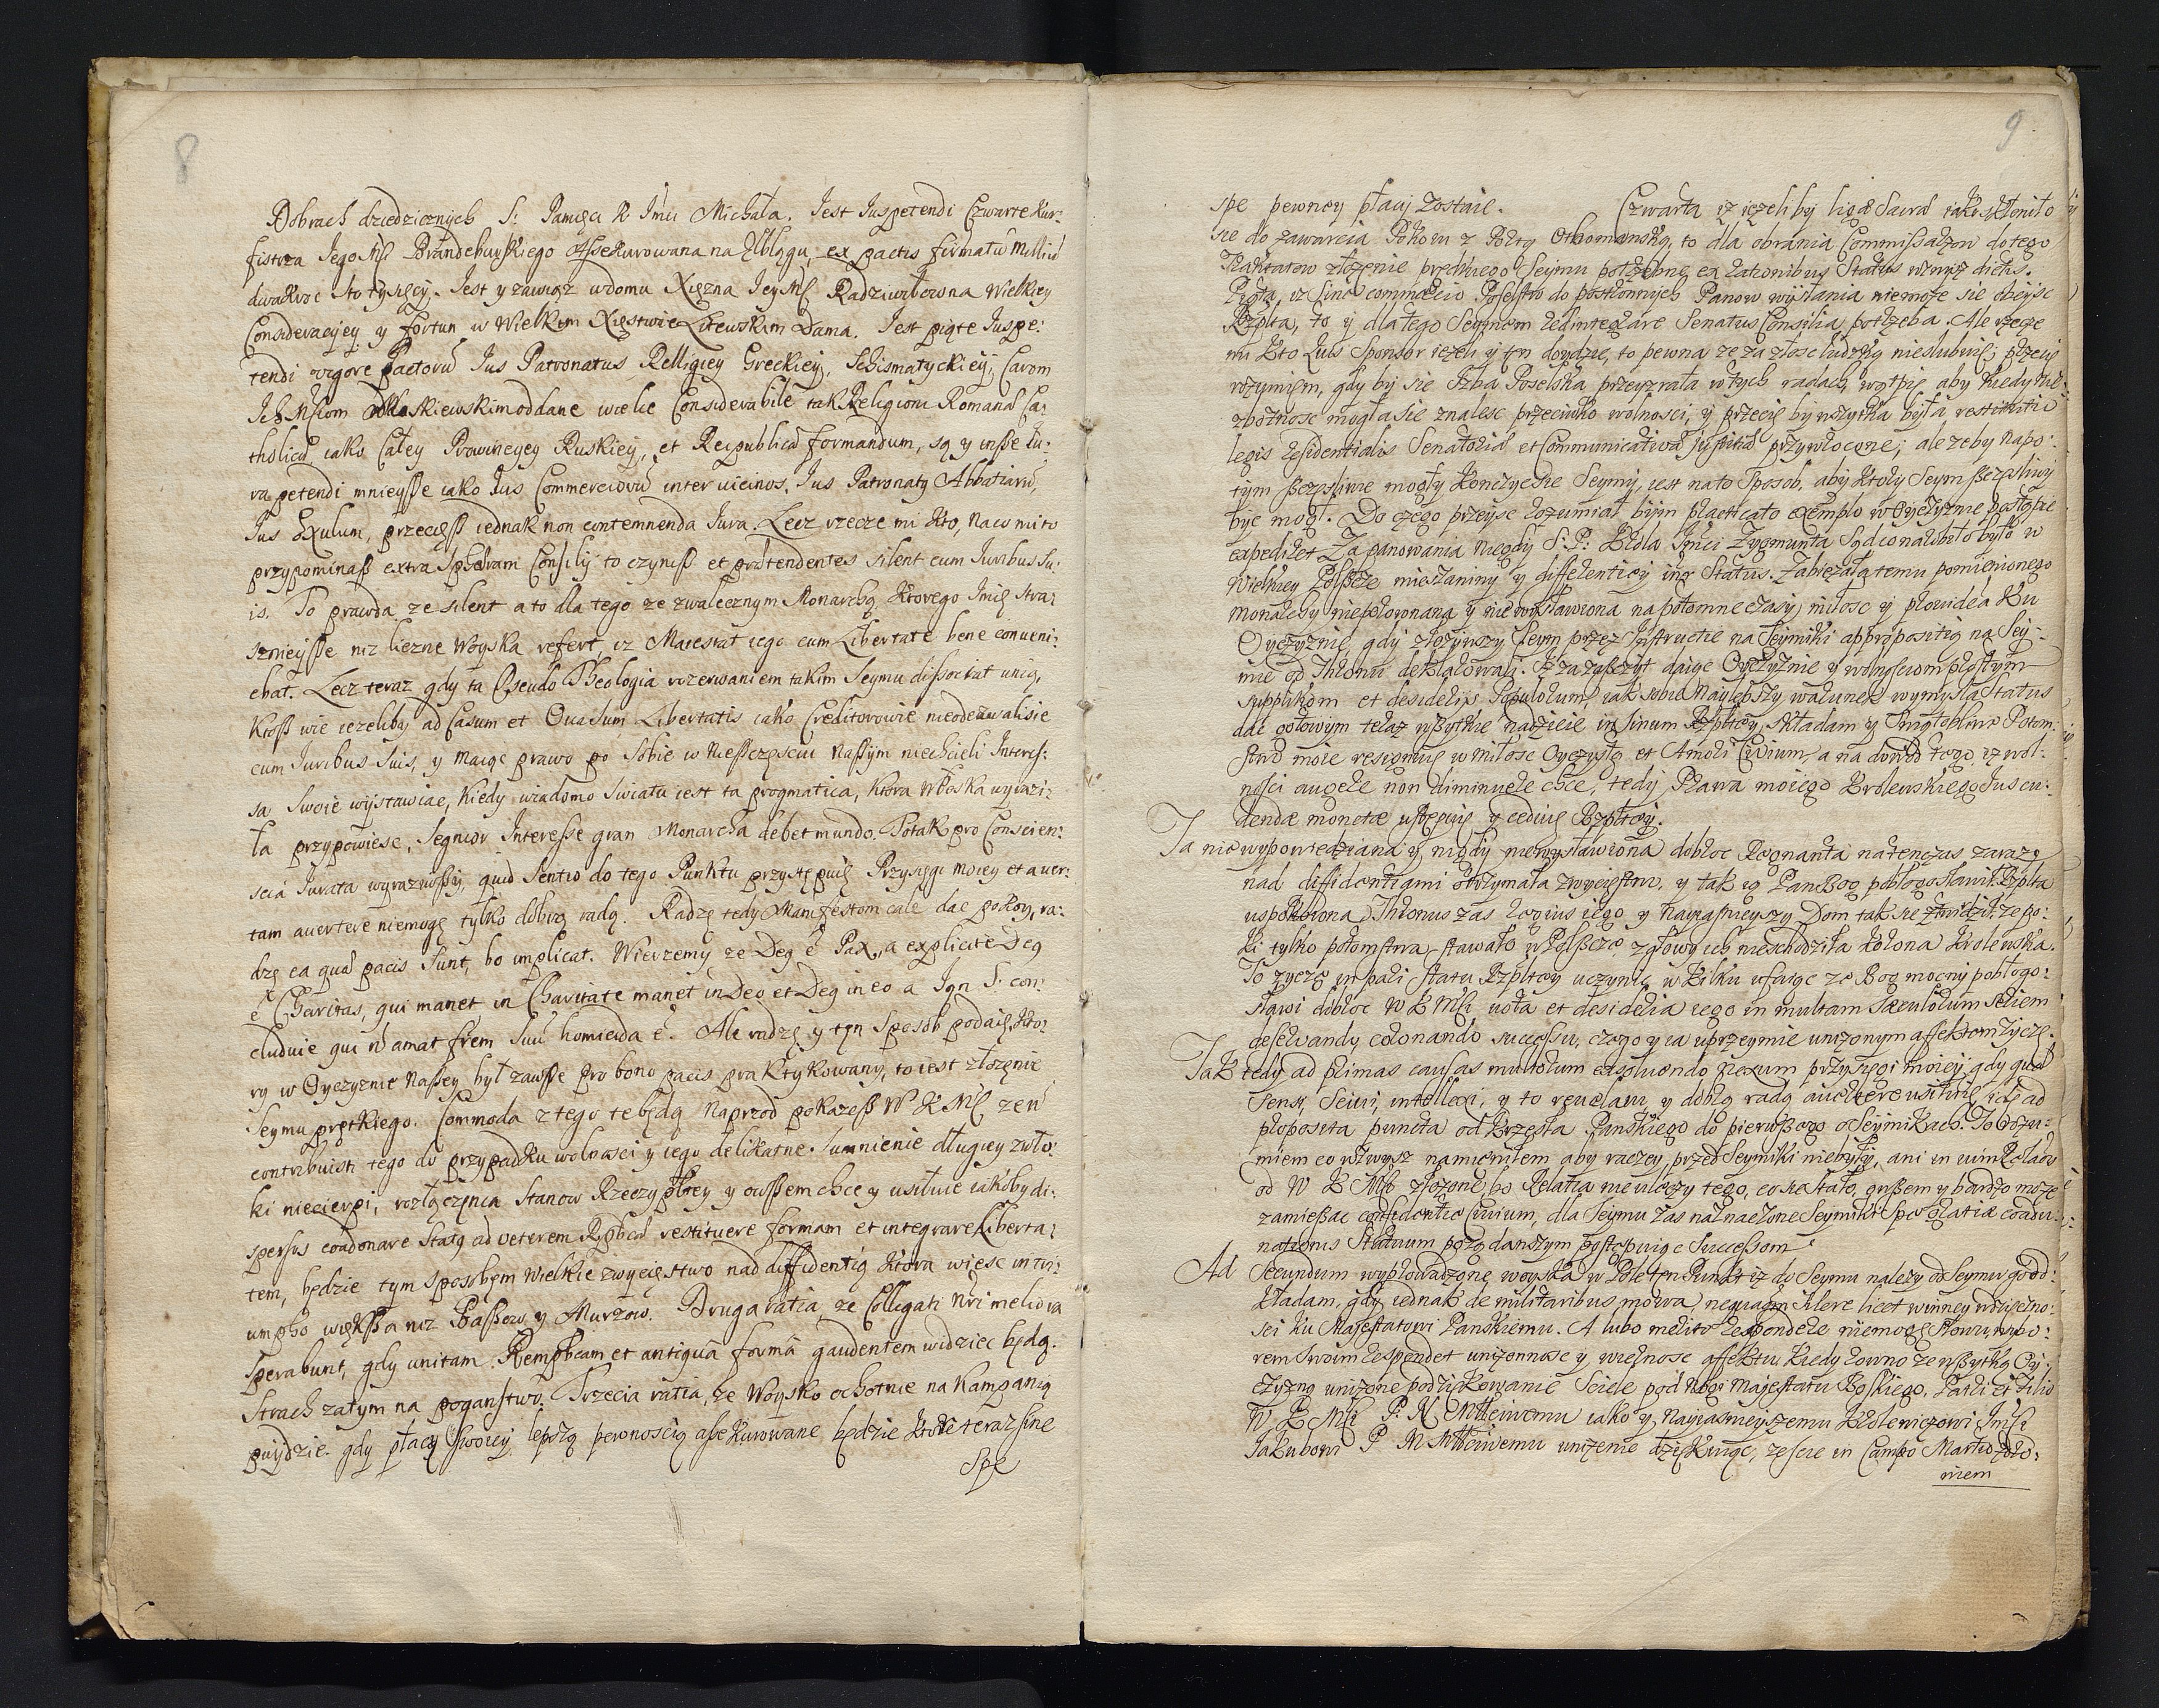 8
Dobrach dziedzicznych S: Pamięci K Jmci Michała. Jest Jus petendi Czwarte Kur:
fistrza Jego Mśc Brandeburskiego Assekurowana na Elblągu ex pactis firmatū
dwakroć sto tysięcy. Jest y zawiąz w domu Xiężna Jey Mśc Radziwiłłowna Wielkiey
Consideracyey y fortun w Wielkim Xięstwie Litewskim Dama. Jest piąte Jus pe:
tendi vigore Pactorū Jus Patronatus Relligiey Greckiey, Schismatyckiey, Carom
Ich Mściom Moskiewskim oddane wielce Considerabile tak Religioni Romanæ Ca:
tholicæ iako Całey Prowincyey Ruskiey, et Reipublicæ formandum, są y insse Ju:
ra petendi mnieysse iako Jus Commerciorū inter vicinos, Jus Patronatg Abbatiarū,
Jus Exulum, przecięss iednak non contemnenda Jura. Lecz rzecze mi kto, na co mi to
przypominass extra Sphæram Consilij to czyniss et prætendentes silent cum Juribus su:
is. To prawda ze silent a to dla tego ze z walecznym Monarchą ktorego Jmię stra:
sznieysse niz liczne Woyska refert, iz Maiestat iego cum Libertate bene conveni:
ebat. Lecz teraz gdy ta Pseudo Theologia rozerwaniem takim Seymu dissociat unią,
ktoss wie iezeliby ad Casum et Occasum Libertatis iako Creditorowie nieodezwali sie
cum Juribus suis, y maiąc prawo po sobie w niesczęsciu nassym niechcieli Interes:
sa swoie wystawiac, kiedy wiadomo swiatu iest ta progmatica, ktora Włoska wyrazi:
ła przypowiesc, Segnior Interesse gran Monarcha debet mundo. Totak pro Conscien:
scia Jurata wyraziwssy, quid Sentio do tego Punktu przystępuię Przysięgi moiey et aver:
tam avertere niemogę tylko dobrą radą. Radzę tedy Manifestom cale dac pokoy, ra:
dzę ea quæ pacis sunt, bo implicat. Wierzemy ze Deg ē Pax, a explicite Deg
ē Charitas, qui manet in Charitate manet in Deo et Deg in eo a Jan S. con:
cluduie qui n̄ amat frēm suū homicida ē. Ale radzę y ten sposob podaię, kto:
ry w Oyczyznie nassey był zawsse pro bono pacis praktykowany, to iest złożenie
Seymu prętkiego. Commoda z tego te będą naprzod pokazess W K Mśc zeń
contribuisti tego do przypadku wolnosci y iego delikatne Sumnienie długiey zwło:
ki niecierpi, rozłączenia Stanow Rzeczypltey y owssem chce y usiłuie iakoby di:
spersos coadonare Statg ad veterem Rpbcæ restituere formam et integrare Liberta:
tem, będzie tym sposobem wielkie zwycięstwo nad diffidentią ktora wiesc in tri:
umpho większa niz Bassow y Murzow. Druga ratia, ze Colligati nri meliora
sperabunt, gdy unitam Rempbcam et antiquā formā gaudentem widziec będą.
Strach zatym na poganstwo. Trzecia ratia, ze Woysko ochotnie na Kampanią
puydzie gdy płacą swoiey lepszą pewnoscią assekurowane będzie ktore teraz sine
Spe
9
spe pewney płacy zostaie. Czwarta iz iezeliby ligæ Sacræ iako skłoniło
sie do zawarcia Pokoiu z Portą Othomanską, to dla obrania Commissarzow do tego
Traktatow złozenie prędkiego Seymu potrzebne ex rationibus Status wzwyz dictis.
Piąta, iz sine commercio Poselstw do postronnych Panow wysłania niemoze sie obeysc
Rzplta, to y dla tego Seymem redintegrare Senatus Consilia potrzeba. Ale rzecze
mi kto quis Sponsor iezeli y ten doydzie, to pewna ze za złosc ludzką nieslubuię; przecię
rozymiem, gdy by sie Izba Poselska przeyzrała w tych radach, wątpię aby kiedy nie:
zbożnosc mogła sie znalesc przeciwko wolnosci, y przecię by wszytka była restitutio
legis residentialis Senatoriæ et Communicativæ justitiæ przywrocone; ale zeby napo:
tym szczęsliwie mogły konczyc sie Seymy, iest na to sposob, aby ktory Seym szczęsliwy
byc mogł. Do czego przeysc rozumiał bym practicato exemplo w Oyczyznie postąpic
expediret Za panowania niegdy S: P: Krola Jmci Zygmunta Sędiona było w
Wielkiey Polszcze mieszaniny y diffidentiey inr Status. Zabiezała temu pomienionego
Monarchy nieporownana y niewysławiona na potomne czasy miłosc y providea ku
Oyczyznie, gdy złożywszy Seym przez Instructie na Seymiki appropositią na Sey:
mie od Thronu deklarował. Iz zaszczyt daiąc Oyczyznie y wolnsciom prostym
supplikom et desiderijs Populorum, iak sobie naylepszy warunek wymysla Status
dac gotowym teraz wszytkie nadzieie in sinum Rzpltey składam y Swiątobliwe Potom:
stwo moie resignuię w miłosc Oyczystą et Amori Civium, a na dowod tego, iz wol:
nosci augere non diminuere chce, tedy Prawa moiego Krolewskiego Jus cu:
dendæ monetæ ustępuię y ceduię Rzpltey.
Ta niewypowiedziana y nigdy niewysławiona dobroc Regnanta natenczas zarazę
nad diffidentiami otrzymała zwycięstwo, y tak ią Pan Bog pobłogosławił. Rzplta
uspokoiona Thronus zas rogius iego y nayiasnieyszy Dom tak sie ztwirdził, ze po:
ki tylko potomstwa stawało w Polszcze z głowy ich nieschodziła korona Krolewska.
To zyczę in pari statu Rzpltey uczynic w kilku ufaiąc ze Bog mocny pobłogo:
sławi dobroc W K Mśći vota et desideria iego in multam sæculorum seriem
deservandy coronando successu, czego y ia uprzeymie unizonym affektem życzę.
Tak tedy ad primas causas multorum exsolvendo nexum przysięgi moiey, gdy quæ
sensi, scivi, intellexi, y to revelavi, y dobrą radą avertere usiłuię, idę ad
proposita puncta od Krzesła Panskiego do pierwszego o Seymikach. To rozu:
miem co wzwysz namieniłem aby raczey przed Seymiki niebyły, ani in vim Rokow
od W K Mśći złozone, bo Relatia nie wlezy tego, co sie stało, owszem y bardzo moze
zamieszac confidentie Civium, dla Seymu zas naznaczone Seymiki spe gratiæ coadu:
nationis Statuum pożądanszym postępuiąc Successom.
Ad Secundum wyprowadzone woyska w Pole ten Punkt iz do Seymu należy od Seymu go od:
kładam, gdy iednak de militaribus mowa, nequaqm silere licet winney wdzięczno:
sci ku Majestatowi Panskiemu. A lubo merito respondere niemogę słowy, wybo:
rem swoim respondet unizonnosc y wieżnosc affektu kiedy rowno ze wszytką Oy:
czyzną unizone podziękowanie sciele pod Nogi Majestatu Boskiego, Patri et Filio
W K Mśći P. N. Mttciwemu iako y Nayiasnieyszemu Krolewicowi Jmśći
Jakubowi P N Mttciwemu unizenie dziękuiąc, zescie in Campo Martio zdro:
niem